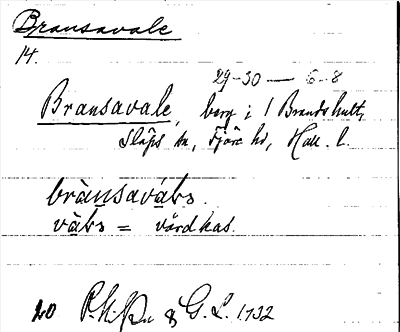 Bransavale
14.
29-30 — 6-8
Bransavale, berg i 1 Brandshult,
Släps sn, Fjäre hd, Hall. l.
brànsavába.
vába = vårdkas.
20 G. L. 1932